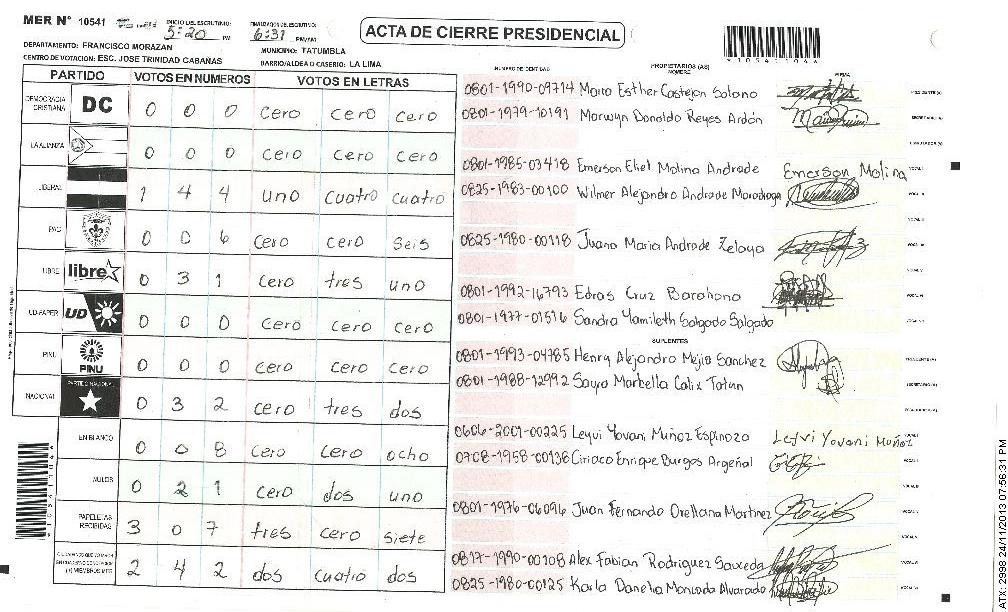 MER N° 10541
INICIO DEL ESCRUTINIO: 5:20 PM
FINALIZACION DEL ESCRUTINIO: 6:31 PM/AM
ACTA DE CIERRE PRESIDENCIAL
*10541044*
DEPARTAMENTO: FRANCISCO MORAZAN
MUNICIPIO: TATUMBLA
CENTRO DE VOTACION: ESC. JOSE TRINIDAD CABAÑAS
BARRIO/ALDEA O CASERIO: LA LIMA
PARTIDO VOTOS EN NUMEROS VOTOS EN LETRAS
DEMOCRACIA CRISTIANA DC 0 0 0 cero cero cero
LA ALIANZA 0 0 0 cero cero cero
LIBERAL 1 4 4 uno cuatro cuatro
PAC 0 0 6 cero cero seis
LIBRE libre 0 3 1 cero tres uno
UD-FAPER UD 0 0 0 cero cero cero
PINU PINU 0 0 0 cero cero cero
NACIONAL PARTIDO NACIONAL 0 3 2 cero tres dos
EN BLANCO 0 0 8 cero cero ocho
NULOS 0 2 1 cero dos uno
PAPELETAS RECIBIDAS 3 0 7 tres cero siete
2 4 2 dos cuatro dos
NUMERO DE IDENTIDAD
PROPIETARIOS (AS)
NOMBRE
FIRMA
0801-1990-09714 Maria Esther Castejon Solano PRESIDENTE(A)
0801-1979-10191 Marwyn Donaldo Reyes Ardón SECRETARIO(A)
ESCRUTADOR(A)
0801-1985-03418 Emerson Eliel Molina Andrade Emerson Molina VOCAL I
0825-1983-00100 Wilmer Alejandro Andrade Maradiaga VOCAL II
VOCAL III
0825-1980-00118 Juana Maria Andrade Zelaya VOCAL IV
VOCAL V
0801-1992-16793 Edras Cruz Barahona VOCAL VI
0801-1977-01516 Sandra Yamileth Salgado Salgado
SUPLENTES
0801-1993-04785 Henry Alejandro Mejia Sanchez PRESIDENTE(A)
0801-1988-12992 Sayra Marbella Calix Tatun SECRETARIO(A)
ESCRUTADOR(A)
0606-2001-00225 Leyvi Yovani Muñoz Espinoza Leyvi Yovani Muñoz VOCAL I
0708-1958-00136 Ciriaco Enrique Burgos Argeñal VOCAL II
VOCAL III
0801-1976-06096 Juan Fernando Orellana Martinez VOCAL IV
VOCAL V
0817-1990-00108 Alex Fabian Rodriguez Sauceda
0825-1980-00125 Karla Danelia Moncada Alvarado
ATX-2998 24/11/2013 07:56:31 PM